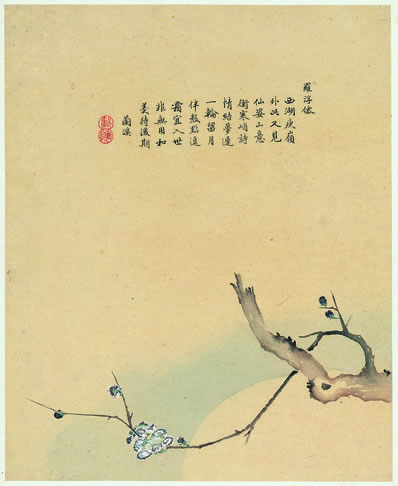 羅浮
西湖庾嶺
外又見
仙姿山意
衝寒峭詩
情結夢遲
一輪留月
伴數點
霜宜入世
非無用和
羹待後期
蘭溪